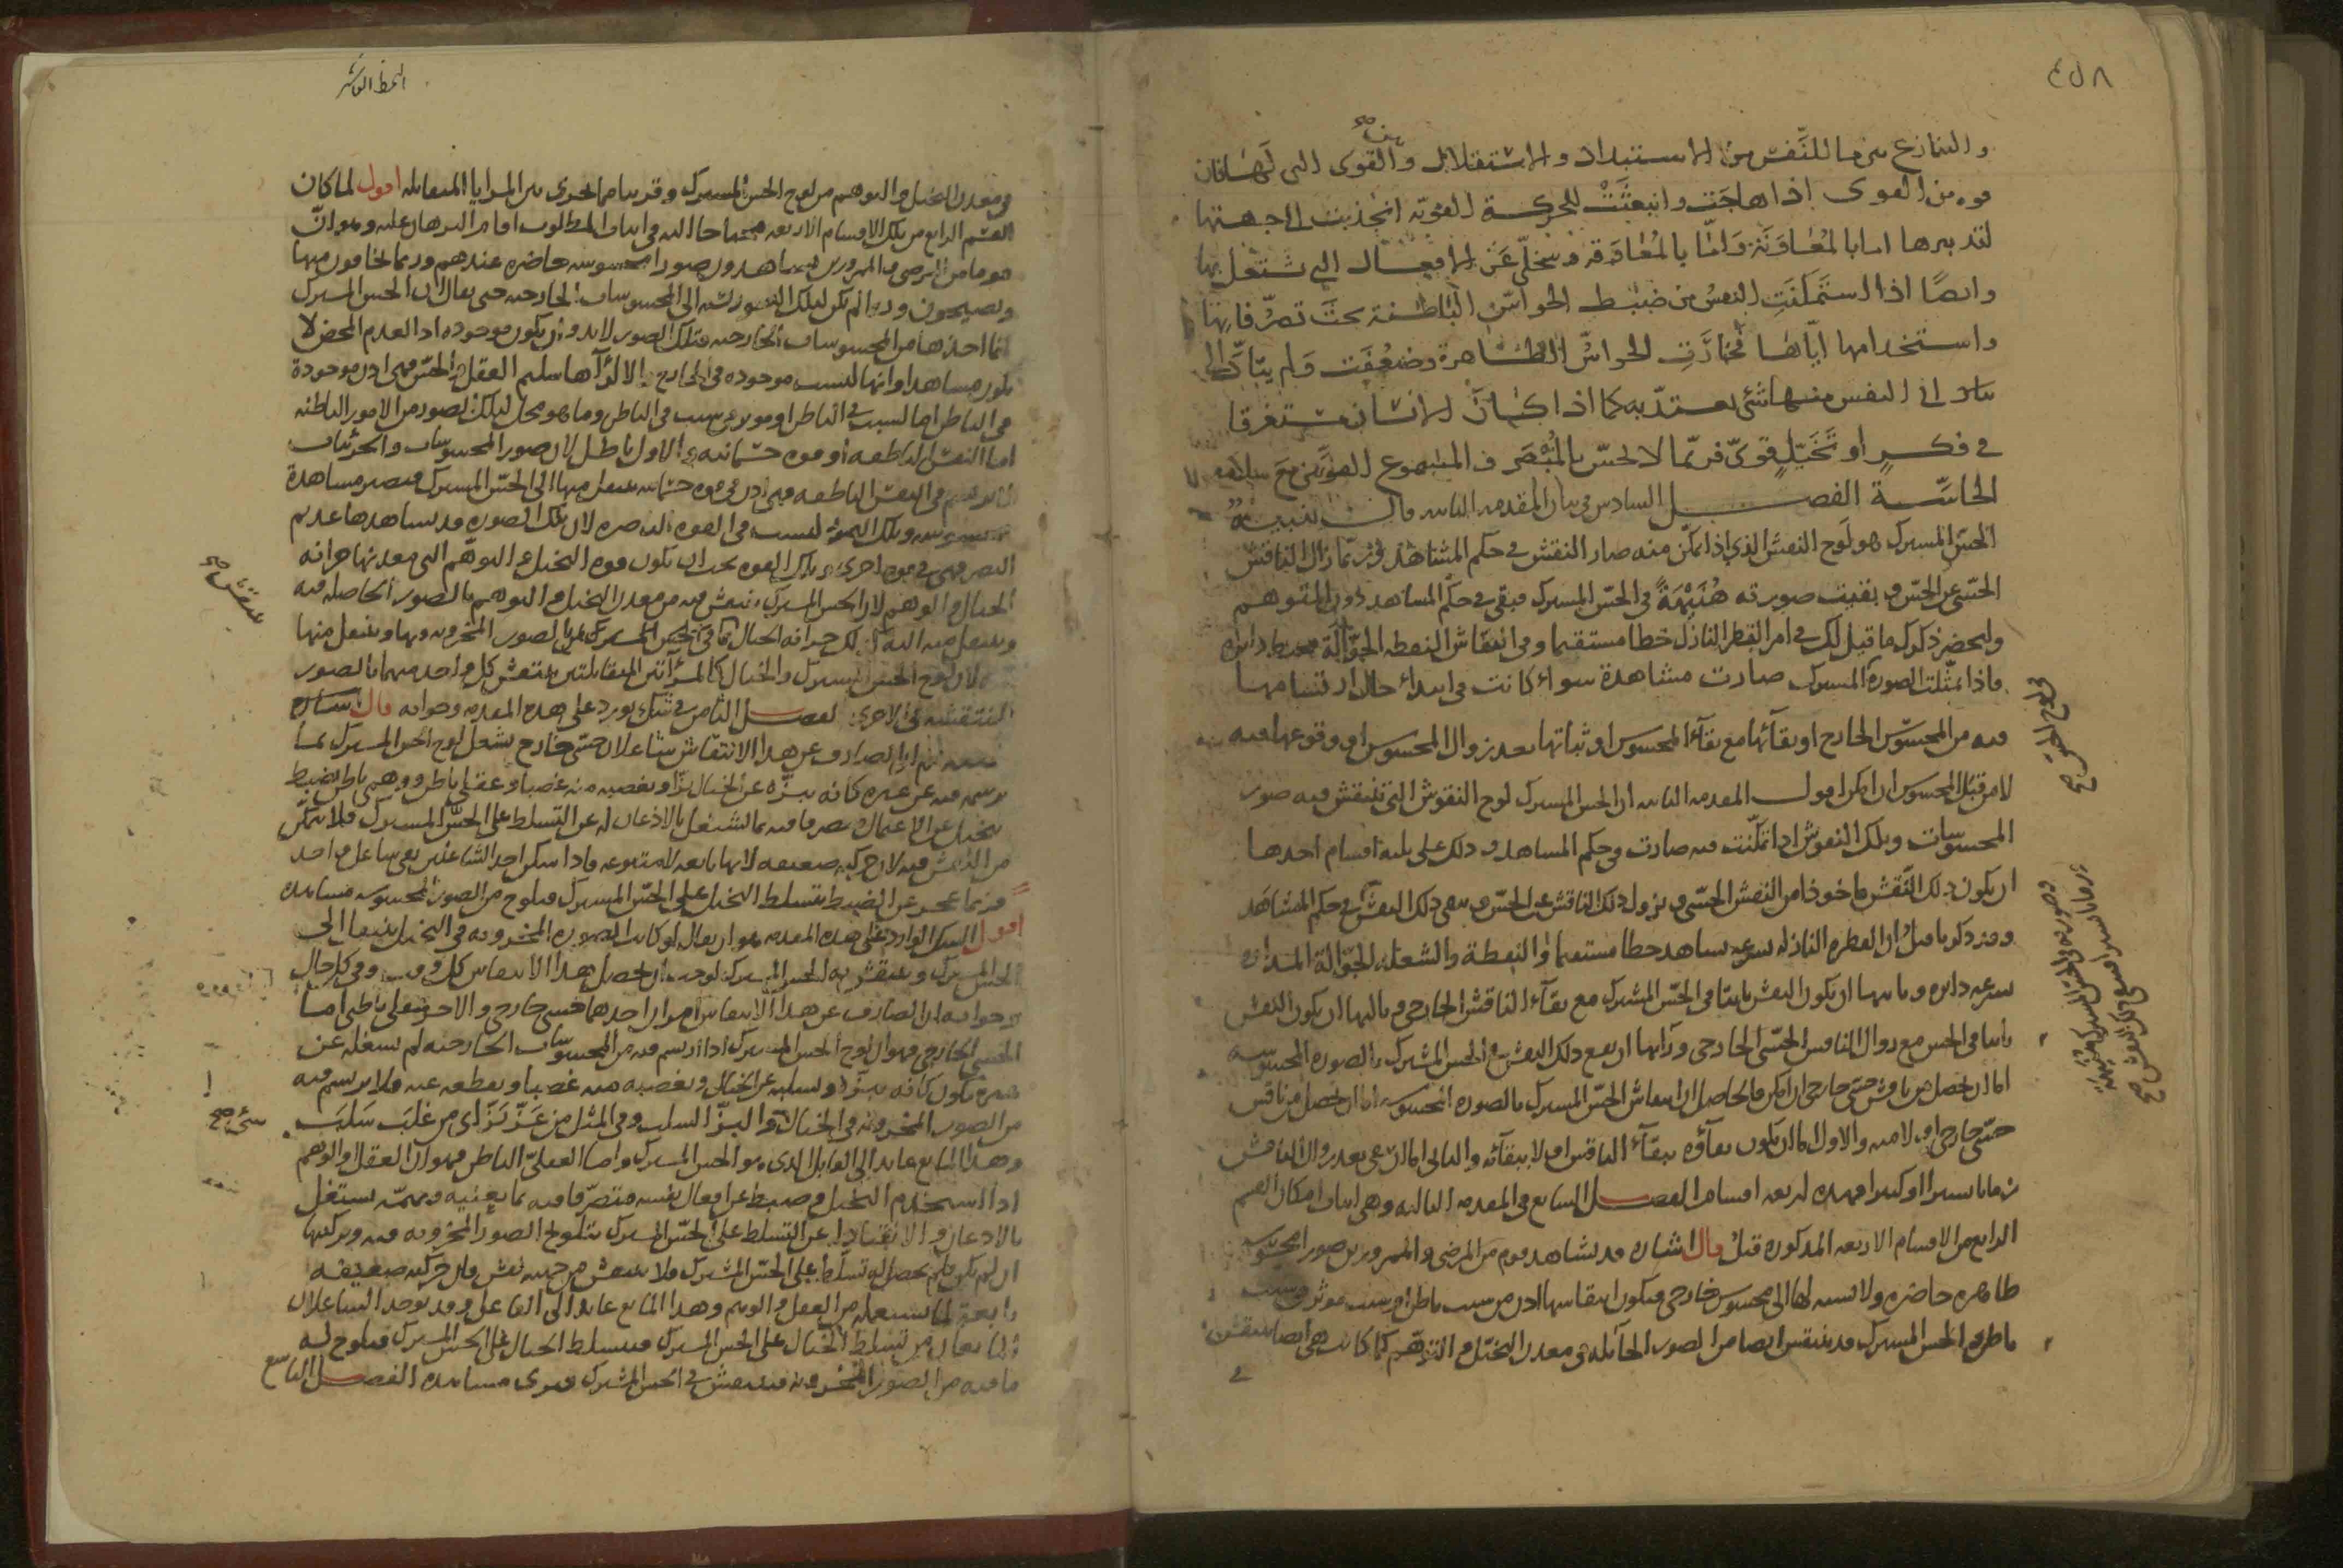 ٤٥٨
والتنازع بين ما للنفس من الاستبداد والاستقلال والقوى التى لها فان
قوه من القوى اذا هاجت وانبعثت للحركة القويه انجذبت الى جهتها
لتدبيرها اما بالمعاونة واما بالمعاوقة وتتخلى عن الافعال التى تشتغل بها
وايضا اذا استمكنت النفس من ضبط الحواس الباطنة تحت تصرفاتها
واستخدامها اياها خارت الحواس الظاهرة وضعفت ولم يتأد
الى النفس منها شئ يعتد به كما اذا كان الانسان مستغرقا
فى فكر او تخيل قوى فربما لا يحس بالمبصر والمسموع القوى مع سلامة
الحاسة الفصل السادس فى بيان المقدمه الثانيه قال تنبيه
الحس المشترك هو لوح النقش الذى اذا تمكن منه صار النقش فى حكم المشاهد وربما زال الناقش
الحسى عن الحس وبقيت صورته هنيهة فى الحس المشترك فبقى فى حكم المشاهد دون المتوهم
وليحضر ذكرك ما قيل لك فى امر القطر النازل خطا مستقيما وفى انتقاش النقطه الجوالة محيط دايره
فاذا تمثلت الصورة المشترك صارت مشاهدة سواء كانت فى ابتداء حال ارتسامها
فيه من المحسوس الخارج او بقائها مع بقاء المحسوس او ثباتها بعد زوال المحسوس او وقوعها فيه
لا من قبل المحسوس ان امكن اقول المقدمه الثانيه ان الحس المشترك لوح النقوش التى تنتقش فيه صور
المحسوسات وتلك النقوش اذا تمكنت فيه صارت فى حكم المشاهد وذلك على اقسام احدها
ان يكون ذلك النقش ماخوذا من النقش الحسى ويزول ذلك الناقش عن الحس ويبقى ذلك النقش فى حكم المشاهد
ومن ذكر ما قيل ان القطره النازله بسرعه تشاهد خطا مستقيما والنقطة والشعلة الجوالة
بسرعه دايره وثانيها ان يكون النقش ثابتا فى الحس المشترك مع بقاء الناقش الخارجى وثالثها ان يكون النقش
ثابتا فى الحس مع زوال الناقش الحسى الخارجى ورابعها ان يقع ذلك النقش فى الحس المشترك والصوره المحسوسه
اما ان تحصل من ناقش حسى خارجى ان امكن والحاصل ان انتقاش الحس المشترك بالصوره المحسوسه اما ان يحصل من ناقش
حسى خارجى او لا منه والاول اما ان يكون بقاؤه ببقاء الناقش او لا ببقائه والثانى اما ان يبقى بعد زوال الناقش
زمانا يسيرا او كثيرا فهذه اربعه اقسام الفصل السابع فى المقدمه الثالثه وهى اثبات امكان القسم
الرابع من الاقسام الاربعه المذكوره قبل قال اشاره قد يشاهد قوم من المرضى والممرورين صورا محسوسه
ظاهره حاضره ولا نسبه لها الى محسوس خارجى فيكون انتقاشها اذن من سبب باطن او سبب مؤثر فى سبب
باطن والحس المشترك قد ينتقش ايضا من الصور الجائله فى معدن التخيل والتوهم كما كانت هى ايضا تنتقش
فى
فى لوح الحس صح
النمط العاشر
فى معدن التخيل والتوهم من لوح الحس المشترك وقريبا مما يجرى بين المرايا المتقابله اقول لما كان
القسم الرابع من تلك الاقسام الاربعه محتاجا اليه فى اثبات المطلوب اقام البرهان عليه وهو ان
قوما من المرضى والممرورين يشاهدون صورا محسوسه حاضره عندهم وربما يخافون منها
ويصيحون ولم يكن لتلك الصور نسبه الى المحسوسات الخارجيه حتى يقال ان الحس المشترك
انما اخذها من المحسوسات الخارجيه فتلك الصور لا بد وان يكون موجوده اذ العدم المحض لا
يكون مشاهدا وانها ليست موجوده فى الخارج والا لرآها سليم العقل والحس فهى اذن موجودة
فى الباطن اما لسبب فى الباطن او مؤثر فى سبب فى الباطن وما هو محل لتلك الصور من الامور الباطنه
اما النفس الناطقه او قوه جسمانيه والاول باطل لان صور المحسوسات والجزئيات
لا ترتسم فى النفس الناطقه فهى اذن فى قوه جسمانيه تنتقل منها الى الحس المشترك فتصير مشاهدة
وتلك القوه ليست هى القوه الباصره لان تلك الصوره قد يشاهدها عديم
البصر فهى قوه اخرى وتلك القوه يجب ان يكون قوه التخيل والتوهم التى معدنها خزانه
الخيال والوهم لان الحس المشترك ينتقش من معدن التخيل والتوهم بالصور الحاصله فيه
لان لوح الحس المشترك والخيال كالمرآتين المتقابلتين ينتقش كل واحد منهما بالصور
المنتقشه فى الاخرى الفصل الثامن فى شك يورد على هذه المقدمه وجوابه قال اشاره
ثم ان الصارف عن هذا الانتقاش شاغلان حسى خارج يشغل لوح الحس المشترك بما
يرسمه فيه عن غيره كانه يبزه عن الخيال بزا ويغصبه منه غصبا وعقلى باطن او وهمى باطن يضبط
التخيل عن الاعتمال متصرفا فيه بما يشتغل بالاذعان له عن التسلط على الحس المشترك فلا يتمكن
من النقش فيه لان حركته ضعيفه لانها تابعه لا متبوعه فاذا سكن احد الشاغلين بقى شاغل واحد
فربما عجز عن الضبط فتسلط التخيل على الحس المشترك فيلوح من الصور المحسوسه مشاهده
اقول الشك الوارد على هذه المقدمه هو ان يقال لو كانت الصوره المخزونه فى التخيل تنتقل الى
الحس المشترك وتنتقش فى الحس المشترك لوجب ان يحصل هذا الانتقاش كل وقت وفى كل حال
وجوابه ان الصارف عن هذا الانتقاش امران احدهما حسى خارجى والاخر عقلى باطنى اما
الحسى الخارجى فهو ان لوح الحس المشترك اذا ارتسم فيه من المحسوسات الخارجيه لم يشغله عن
غيره فيكون كانه يبزه اى يسلبه عن الخيال ويغصبه منه غصبا ويقطعه عنه فلا يرتسم فيه
من الصور المخزونه فى الخيال والبز السلب وفى المثل من عز بز اى من غلب سلب
وهذا المانع عايد الى القابل الذى هو الحس المشترك واما العقلى الباطن فهو ان العقل او الوهم
اذا استخدم التخيل وضبط عن افعال نفسه متصرفا فيه بما يعنيه ويهمه يشتغل
بالاذعان والانقياد له عن التسلط على الحس المشترك بتلويح الصور المخزونه فيه وتركيبها
لم يكن يحصل له تسلط على الحس المشترك فلا ينتقش من حيث نقش فان حركته ضعيفه
تابعة لما يستعمله من العقل والوهم وهذا المانع عايد الى الفاعل وقد يوجد الشاغلان
المانعان من تسلط الخيال على الحس المشترك فيتسلط الخيال على الحس المشترك فيلوح له
ما فيه من الصور المخزونه فينتقش فى الحس المشترك فيرى مشاهده الفصل التاسع
ينتقش صح
شئ صح